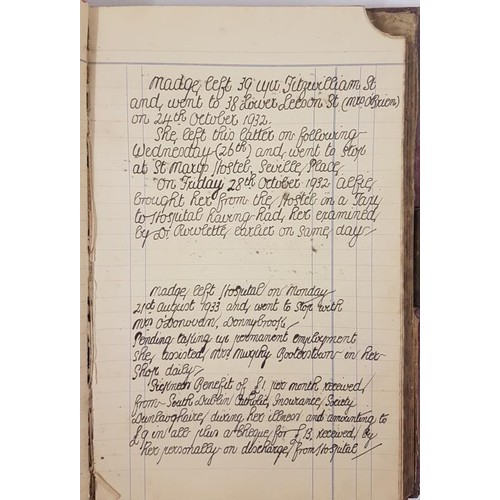 Madge left 39 upr Fitzwilliam St
and went to 38 Lower Leeson St (Mrs O'Brien)
on 24th October 1932.
She left this latter on following
Wednesday (26th) and went to stop
at St Marys Hostel, Seville Place
On Friday 28th October 1932 Alfie
brought her from the Hostel in a Taxy
to Hospital having had her examined
by Dr Rowlette earlier on same day
Madge left Hospital on Monday
21st August 1933 and went to stop with
Mrs O'Donovan, Donnybrook
Pending taking up permanent employment
she assisted Mrs Murphy Booterstown in her
shop daily
Sickness Benefit of £1 per month received
from South Dublin Catholic Insurance Society
Dunlaoghaire, during her illness and amounting to
£9 in all plus a cheque for £ received by
her personally on discharge from Hospital